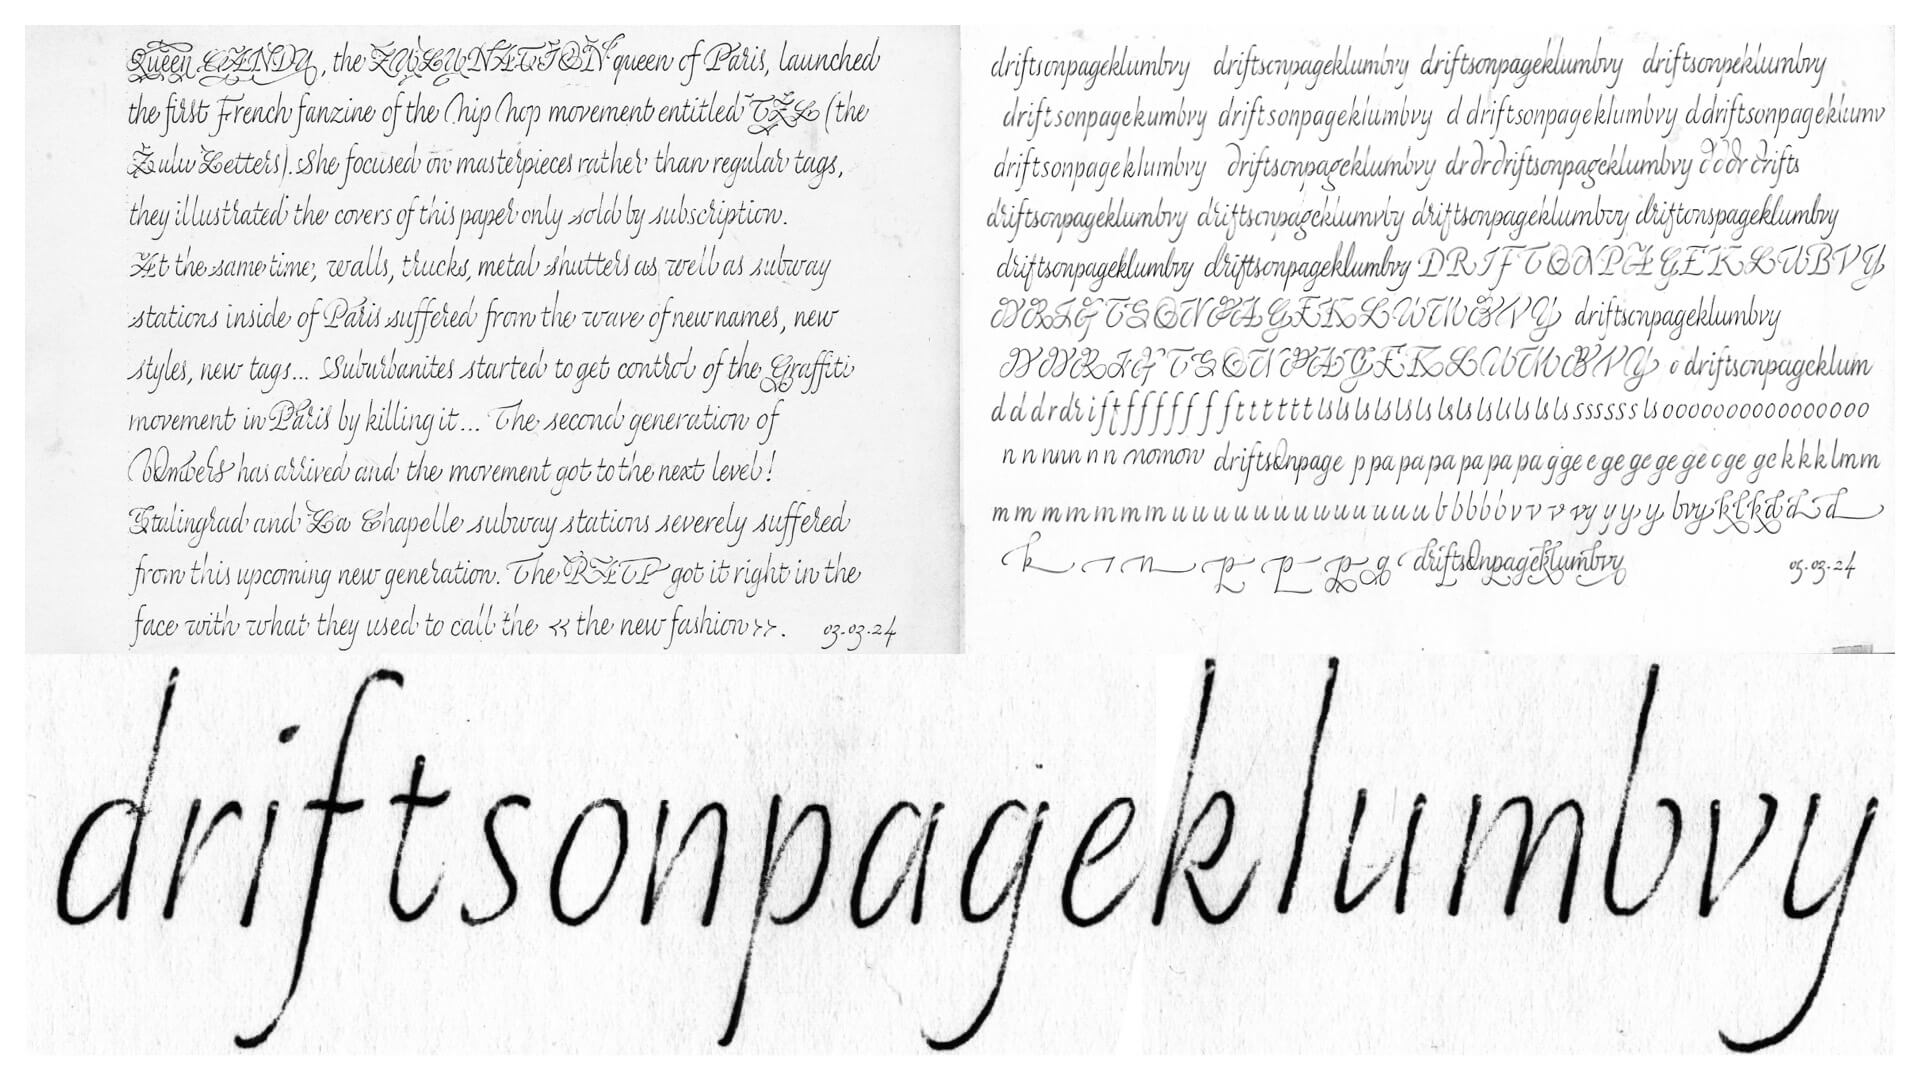 Queen CANDY, the ZULU NATION queen of Paris, launched
the first French fanzine of the hip hop movement entitled TZL (the
Zulu Letters). She focused on masterpieces rather than regular tags,
they illustrated the covers of this paper only sold by subscription.
At the same time, walls, trucks, metal shutters as well as subway
stations inside of Paris suffered from the wave of new names, new
styles, new tags... Suburbanites started to get control of the Graffiti
movement in Paris by killing it... The second generation of
bOmbers has arrived and the movement got to the next level!
Stalingrad and La Chapelle subway stations severely suffered
from this upcoming new generation. The RATP got it right in the
face with what they used to call the << the new fashion >>. 03.03.24
driftsonpageklumbvy driftsonpageklumbvy driftsonpageklumbvy driftsonpeklumbvy
driftsonpagekumbvy driftsonpageklumbvy d driftsonpageklumbvy d driftsonpageklumv
driftsonpageklumbvy driftsonpageklumbvy dr dr driftsonpageklumbvy d d dr drifts
driftsonpageklumbvy driftsonpageklumvby driftsonpageklumbvy driftonspageklumbvy
driftsonpageklumbvy driftsonpageklumbvy DRIFTONPAGEKLUBVY
DRIFTSONPAGEKLUMBVY driftsonpageklumbvy
D DRIFTSONPAGEKLUMBVY o driftsonpageklum
d d d r d r i f t f f f f f f f t t t t t t ls ls ls ls ls ls ls ls ls ls ls ls s s s s s s ls o o o o o o o o o o o o o o o o
n n n n n n n nomon driftsOnpage p pa pa pa pa pa pa pa g ge e ge ge ge ge ge e ge ge k k k l m m
m m m m m m m m u u u u u u u u u u u u u b b b b b v v v vy y y y y bvy k l k d d d
k r n p p p g driftsOnpageklumbvy 05.03.24
driftsonpageklumbvy